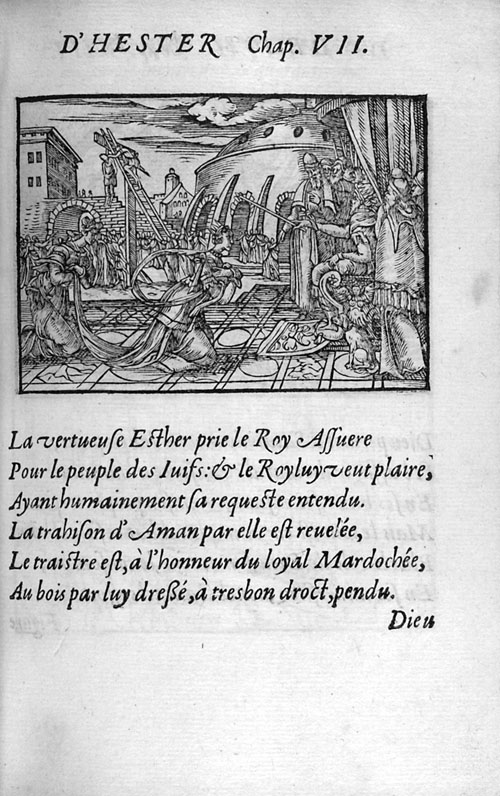 D'HESTER Chap. VII.
La vertueuſe Eſther prie le Roy Aſſuere
Pour le peuple des Iuifs: & le Roy luy veut plaire,
Ayant humainement ſa requeſte entendu.
La trahiſon d'Aman par elle eſt reuelée,
Le traiſtre eſt, à l'honneur du loyal Mardochée,
Au bois par luy dreſſé, à tresbon droct, pendu.
Dieu